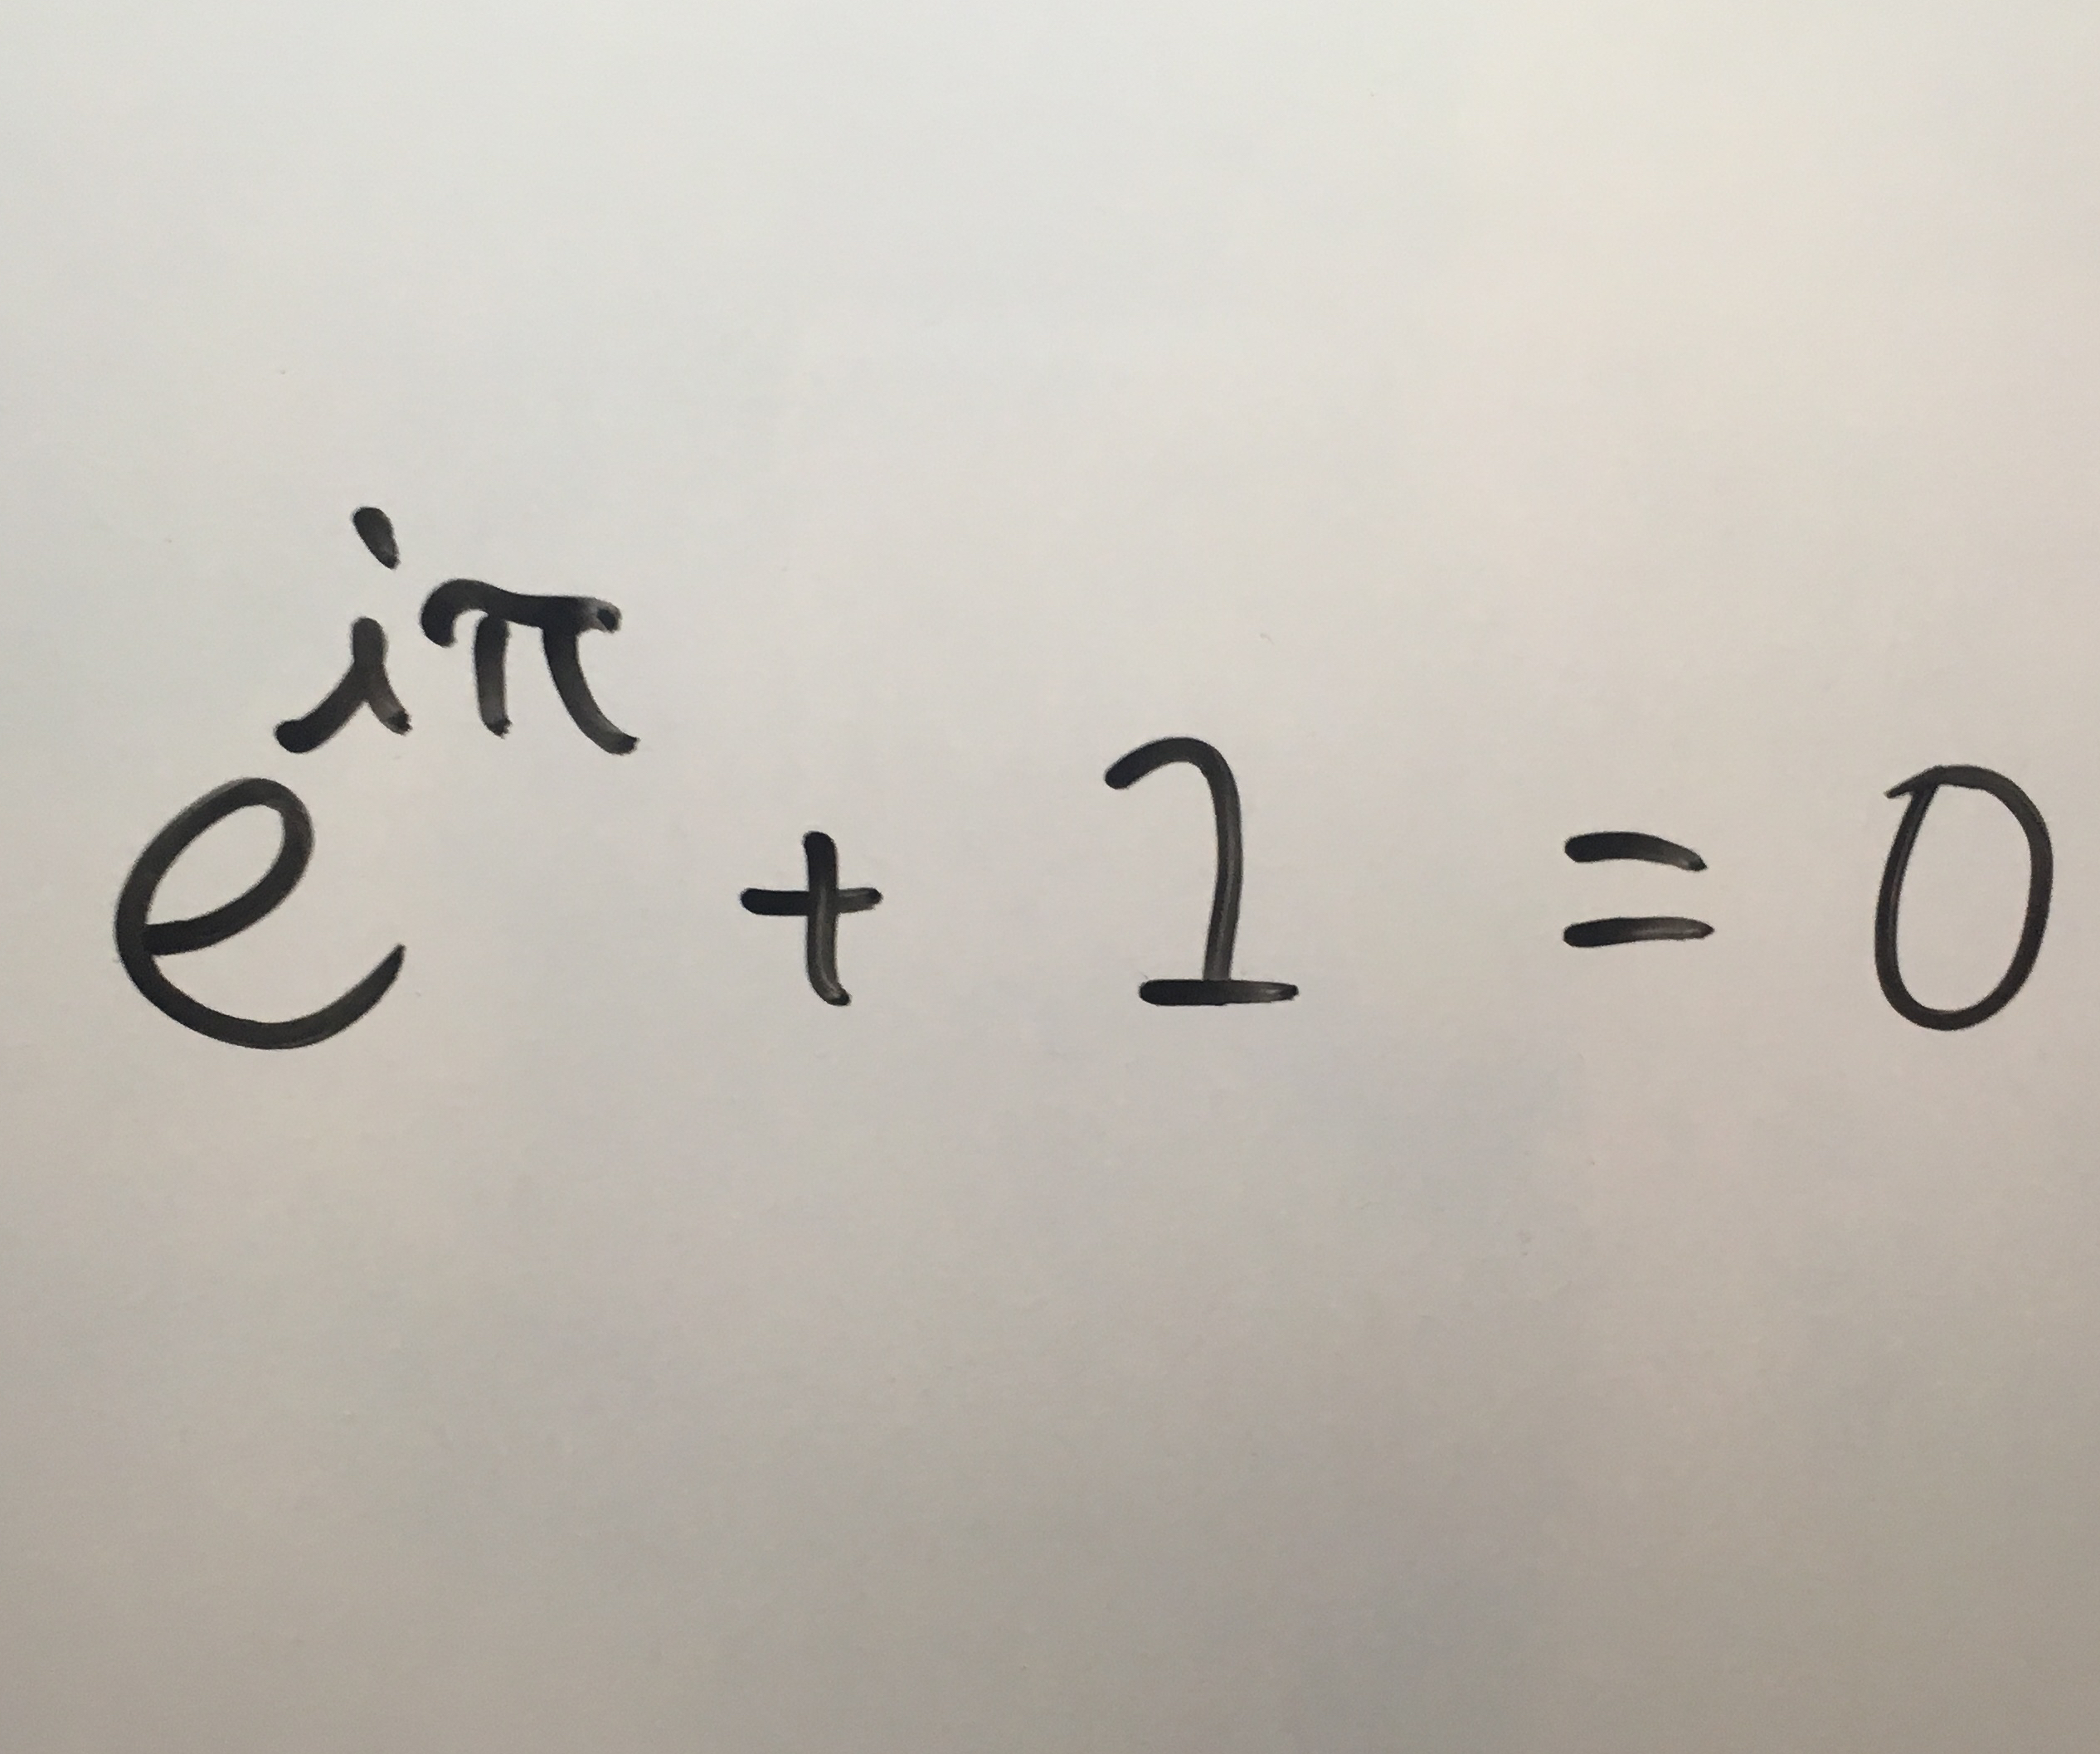 e^{iπ} + 1 = 0